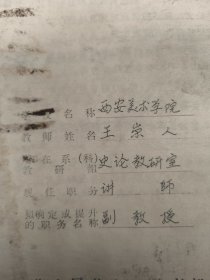 名称 西安美术学院
教师姓名 王崇人
所在系(科)教研组 史论教研室
现任职务 讲师
拟确定或提升的职务名称 副教授